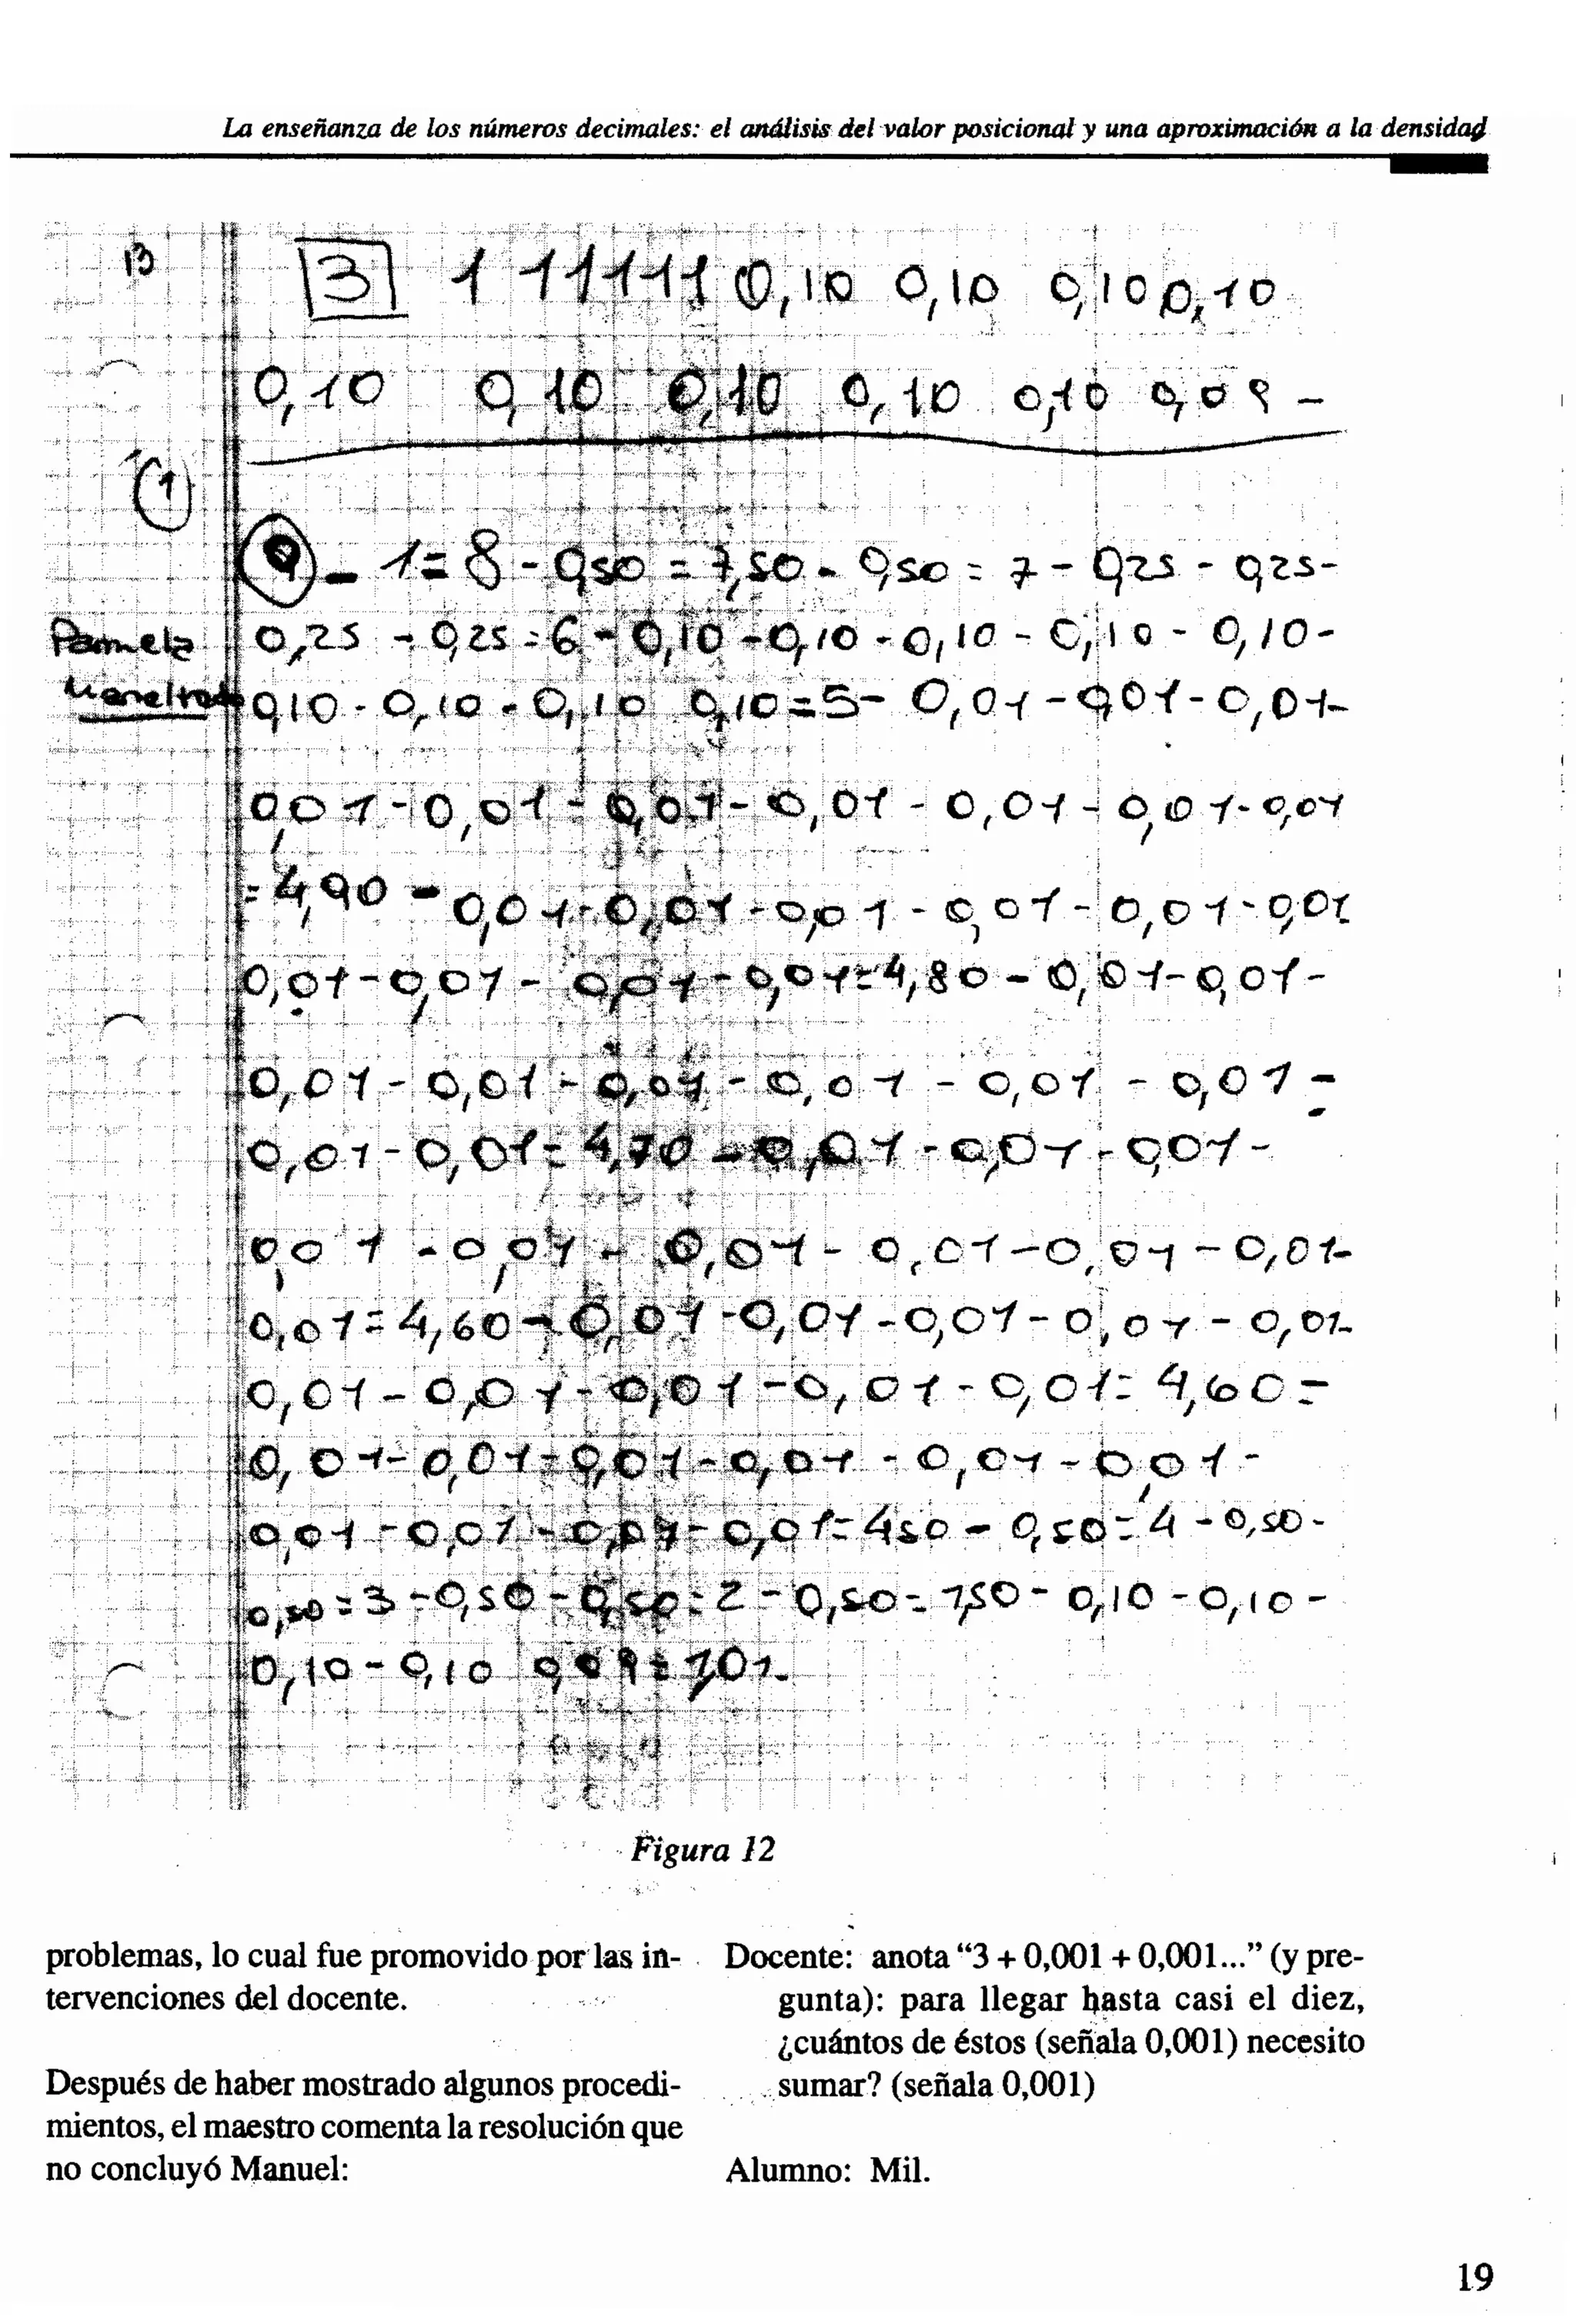 La enseñanza de los números decimales: el análisis del valor posicional y una aproximación a la densidad
13
3 1 1 1 1 1 1 0,10 0,10 0,10 0,10
0,10 0,10 0,10 0,10 0,10 0,09 -
1
9 - 1 = 8 - 0,50 = 7,50 - 0,50 = 7 - 0,25 - 0,25 -
Pamela 0,25 - 0,25 = 6 - 0,10 - 0,10 - 0,10 - 0,10 - 0,10 -
0,10 - 0,10 - 0,10 0,10 = 5 - 0,01 - 0,01 - 0,01 -
0,01 - 0,01 - 0,01 - 0,01 - 0,01 - 0,01 - 0,01
= 4,90 - 0,01 - 0,01 - 0,01 - 0,01 - 0,01 - 0,01
0,01 - 0,01 - 0,01 - 0,01 = 4,80 - 0,01 - 0,01 -
0,01 - 0,01 - 0,01 - 0,01 - 0,01 - 0,01 -
0,01 - 0,01 = 4,70 - 0,01 - 0,01 - 0,01 -
0,01 - 0,01 - 0,01 - 0,01 - 0,01 - 0,01 -
0,01 = 4,60 - 0,01 - 0,01 - 0,01 - 0,01 - 0,01 -
0,01 - 0,01 - 0,01 - 0,01 - 0,01 = 4,60 =
0,01 - 0,01 - 0,01 - 0,01 - 0,01 - 0,01 -
0,01 - 0,01 - 0,01 - 0,01 = 4,50 - 0,50 = 4 - 0,50 -
0,50 = 3 - 0,50 - 0,50 = 2 - 0,50 = 1,50 - 0,10 - 0,10 -
0,10 - 0,10 0,09 = 1,01 -
Figura 12
problemas, lo cual fue promovido por las in-
tervenciones del docente.
Después de haber mostrado algunos procedi-
mientos, el maestro comenta la resolución que
no concluyó Manuel:
Docente: anota “3 + 0,001 + 0,001...” (y pre-
gunta): para llegar hasta casi el diez,
¿cuántos de éstos (señala 0,001) necesito
sumar? (señala 0,001)
Alumno: Mil.
19